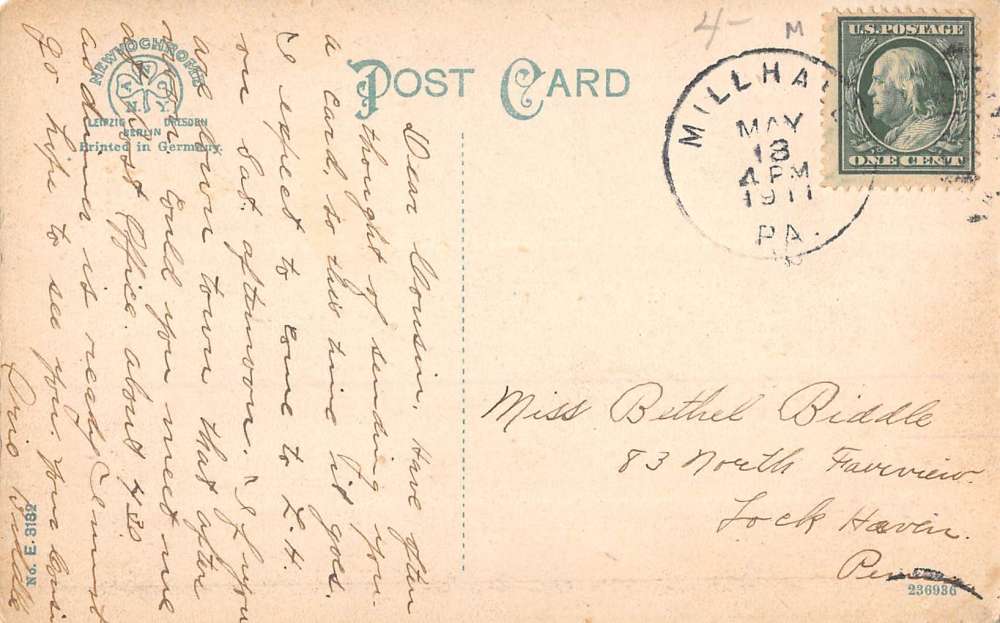 POST CARD
NEWVOCHROME
A P C
N. Y.
LEIPZIG DRESDEN
BERLIN
Printed in Germany.
4-
M
MILLHA
MAY
13
4 PM
1911
PA.
U.S. POSTAGE
ONE CENT
Dear Cousin, Have often
thought of sending you
a card, so this time it goes.
I expect to come to L.H.
on Sat. afternoon. If you
are down town that after
noon could you meet me
at Post Office. about 4:30
as dinner is ready I must
go hope to see you. Your Cousin
Miss Bethel Biddle
83 North Fairview.
Lock Haven.
Penn
No. E. 3182
236936